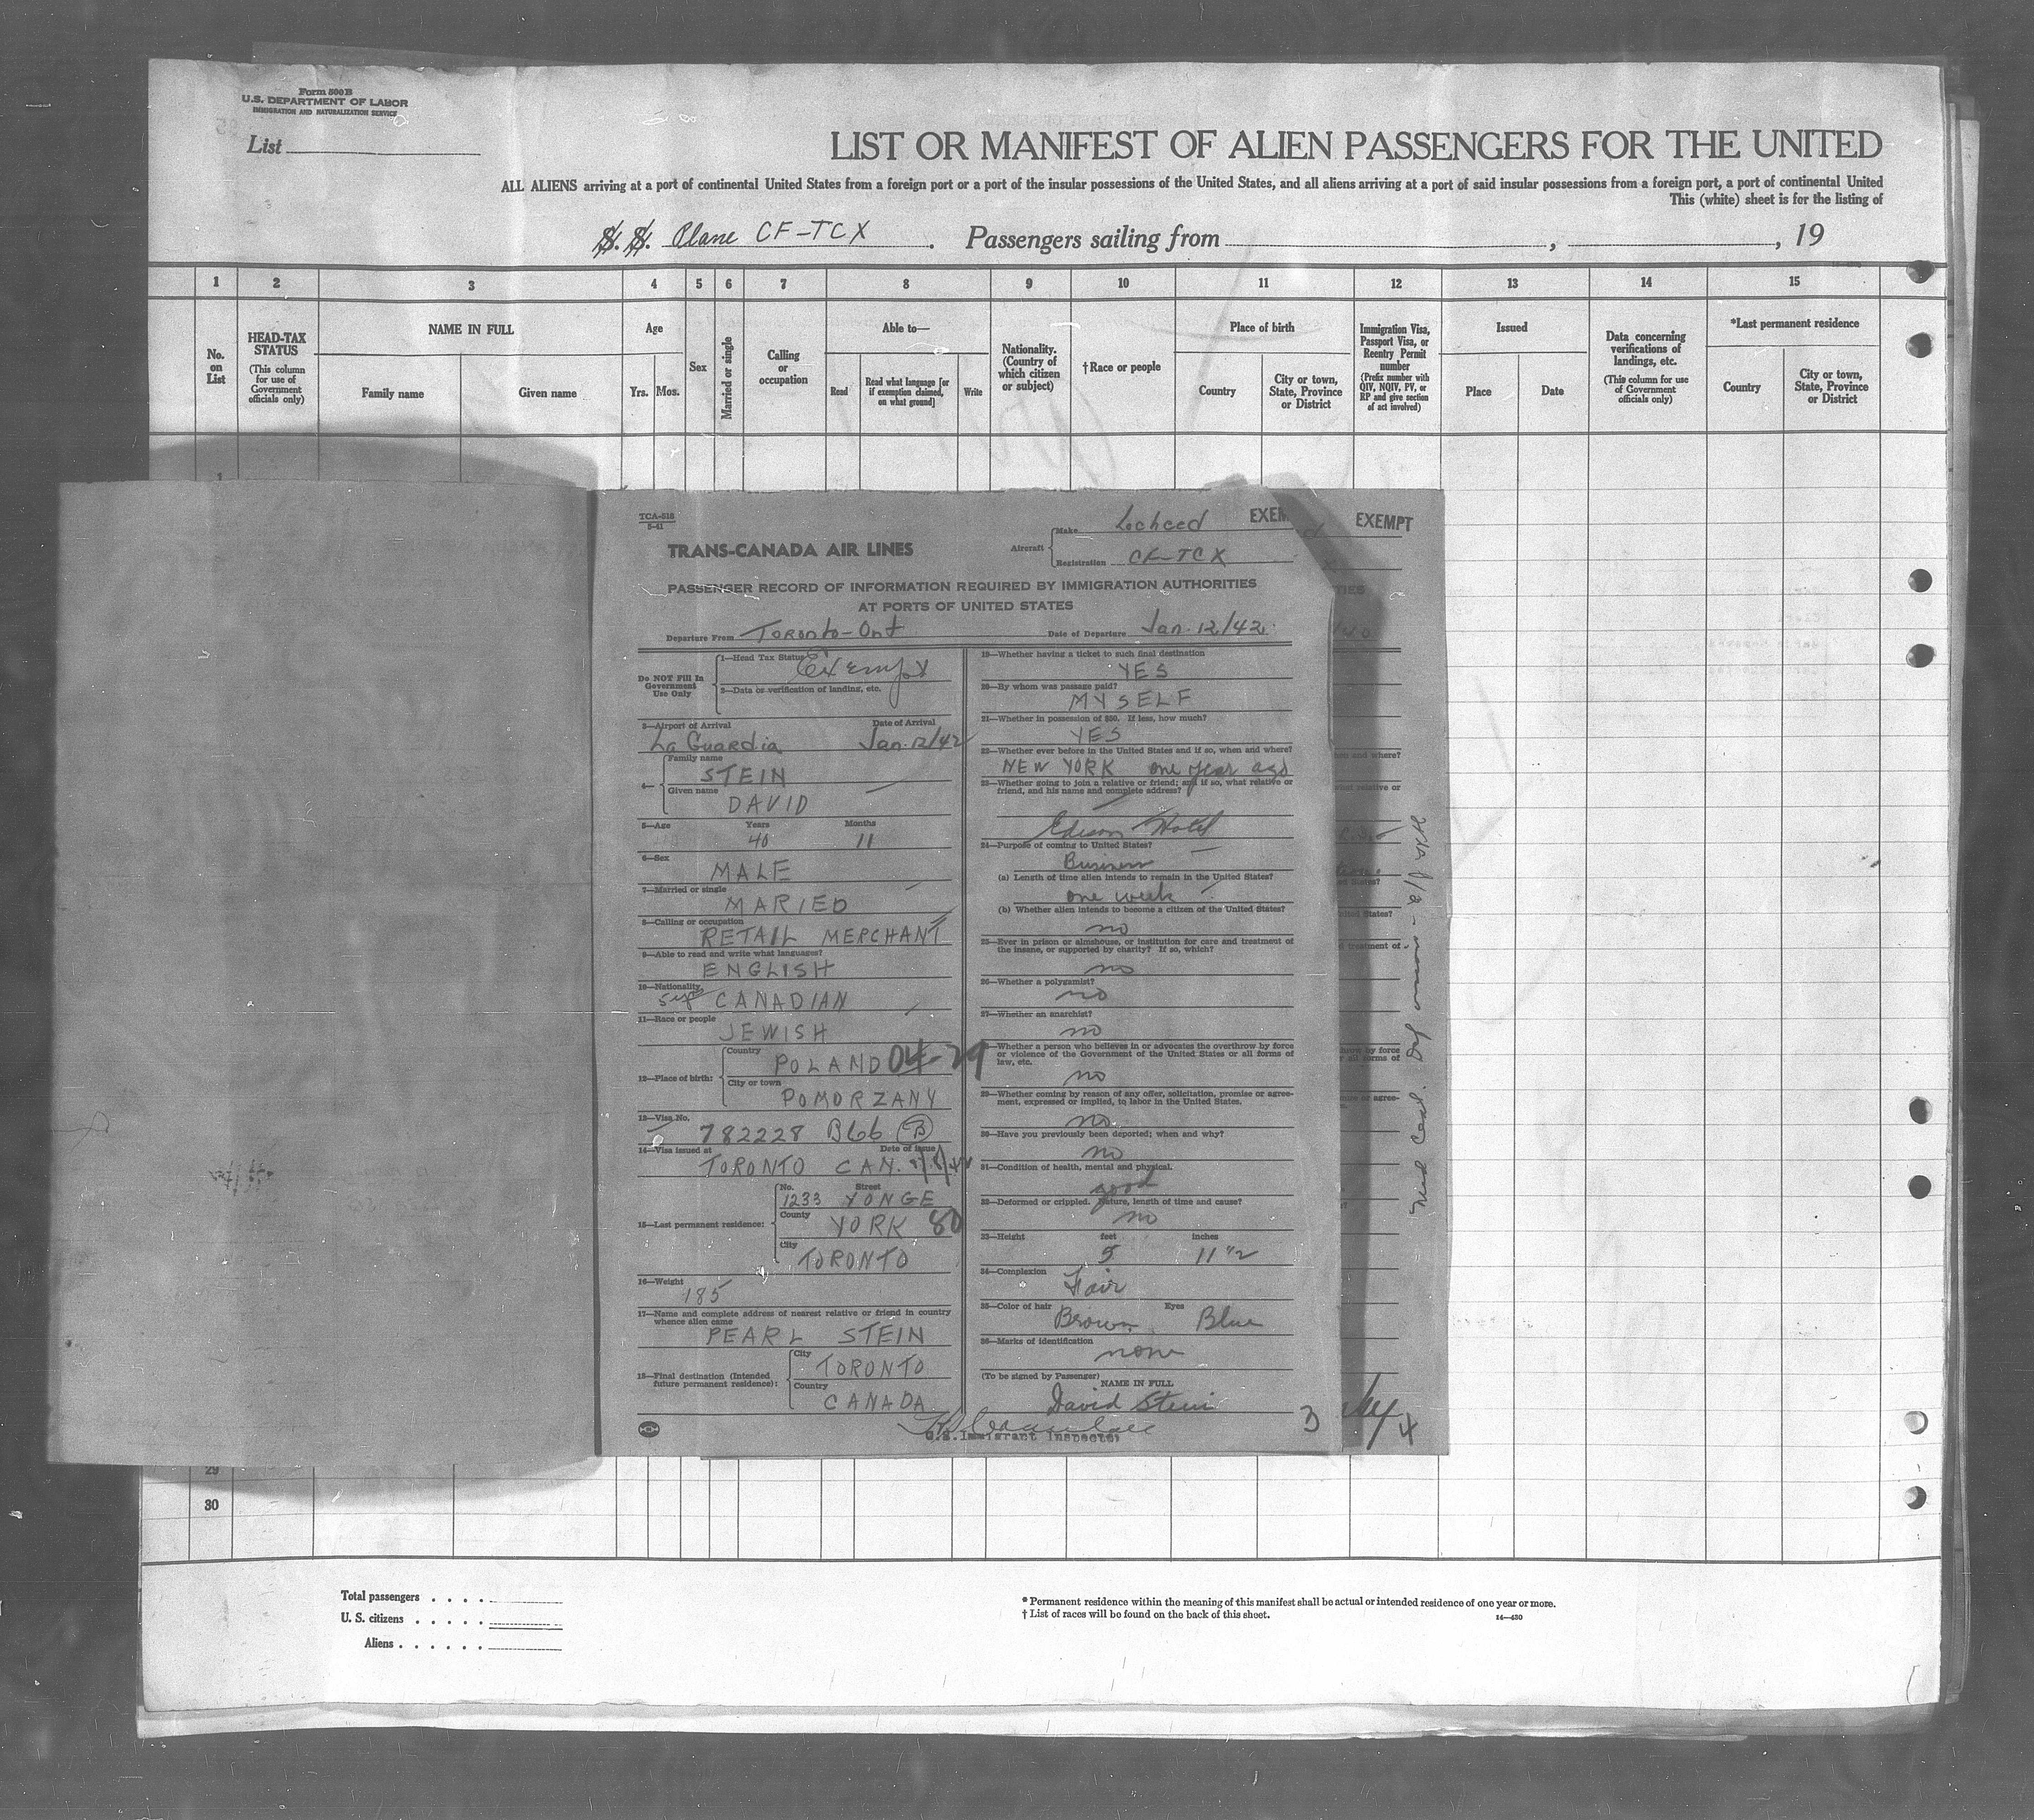 Form 500B
U.S. DEPARTMENT OF LABOR
IMMIGRATION AND NATURALIZATION SERVICE
List
LIST OR MANIFEST OF ALIEN PASSENGERS FOR THE UNITED
ALL ALIENS arriving at a port of continental United States from a foreign port or a port of the insular possessions of the United States, and all aliens arriving at a port of said insular possessions from a foreign port, a port of continental United
This (white) sheet is for the listing of
S. S. Plane CF-TCX. Passengers sailing from , , 19
1 2 3 4 5 6 7 8 9 10 11 12 13 14 15
No. on List
HEAD-TAX STATUS
(This column for use of Government officials only)
NAME IN FULL
Family name Given name
Age
Yrs. Mos.
Sex
Married or single
Calling or occupation
Able to—
Read Read what language [or if exemption claimed, on what ground] Write
Nationality. (Country of which citizen or subject)
†Race or people
Place of birth
Country City or town, State, Province or District
Immigration Visa, Passport Visa, or Reentry Permit number
(Prefix number with QIV, NQIV, PV, or RP and give section of act involved)
Issued
Place Date
Data concerning verifications of landings, etc.
(This column for use of Government officials only)
*Last permanent residence
Country City or town, State, Province or District
TCA-518
5-41
TRANS-CANADA AIR LINES
Aircraft
Make Locheed
Registration CF-TCX
EXEMPT
PASSENGER RECORD OF INFORMATION REQUIRED BY IMMIGRATION AUTHORITIES
AT PORTS OF UNITED STATES
Departure From Toronto-Ont Date of Departure Jan. 12/42
Do NOT Fill In Government Use Only
1—Head Tax Status Exempt
2—Data or verification of landing, etc.
3—Airport of Arrival Date of Arrival
La Guardia Jan. 12/42
4—
Family name
STEIN
Given name
DAVID
5—Age Years Months
40 11
6—Sex
MALE
7—Married or single
MARIED
8—Calling or occupation
RETAIL MERCHANT
9—Able to read and write what languages?
ENGLISH
10—Nationality
CANADIAN
11—Race or people
JEWISH
12—Place of birth:
Country
POLAND 04-29
City or town
POMORZANY
13—Visa No.
782228 B66 B
14—Visa issued at Date of Issue
TORONTO CAN.
15—Last permanent residence:
No. Street
1233 YONGE
County
YORK 80
City
TORONTO
16—Weight
185
17—Name and complete address of nearest relative or friend in country
whence alien came
PEARL STEIN
18—Final destination (Intended
future permanent residence):
City
TORONTO
Country
CANADA
19—Whether having a ticket to such final destination
YES
20—By whom was passage paid?
MYSELF
21—Whether in possession of $50. If less, how much?
YES
22—Whether ever before in the United States and if so, when and where?
NEW YORK one year ago
23—Whether going to join a relative or friend; and if so, what relative or
friend, and his name and complete address?
Edison Hotel
24—Purpose of coming to United States?
Business
(a) Length of time alien intends to remain in the United States?
one week
(b) Whether alien intends to become a citizen of the United States?
no
25—Ever in prison or almshouse, or institution for care and treatment of
the insane, or supported by charity? If so, which?
no
26—Whether a polygamist?
no
27—Whether an anarchist?
no
28—Whether a person who believes in or advocates the overthrow by force
or violence of the Government of the United States or all forms of
law, etc.
no
29—Whether coming by reason of any offer, solicitation, promise or agree-
ment, expressed or implied, to labor in the United States.
no
30—Have you previously been deported; when and why?
no
31—Condition of health, mental and physical.
good
32—Deformed or crippled. Nature, length of time and cause?
no
33—Height feet inches
5 11 1/2
34—Complexion
Fair
35—Color of hair Eyes
Brown Blue
36—Marks of identification
none
(To be signed by Passenger)
NAME IN FULL
David Stein
U.S. Immigrant Inspector
3
EXEMPT
4
29
30
Total passengers
U. S. citizens
Aliens
* Permanent residence within the meaning of this manifest shall be actual or intended residence of one year or more.
† List of races will be found on the back of this sheet.
14—430